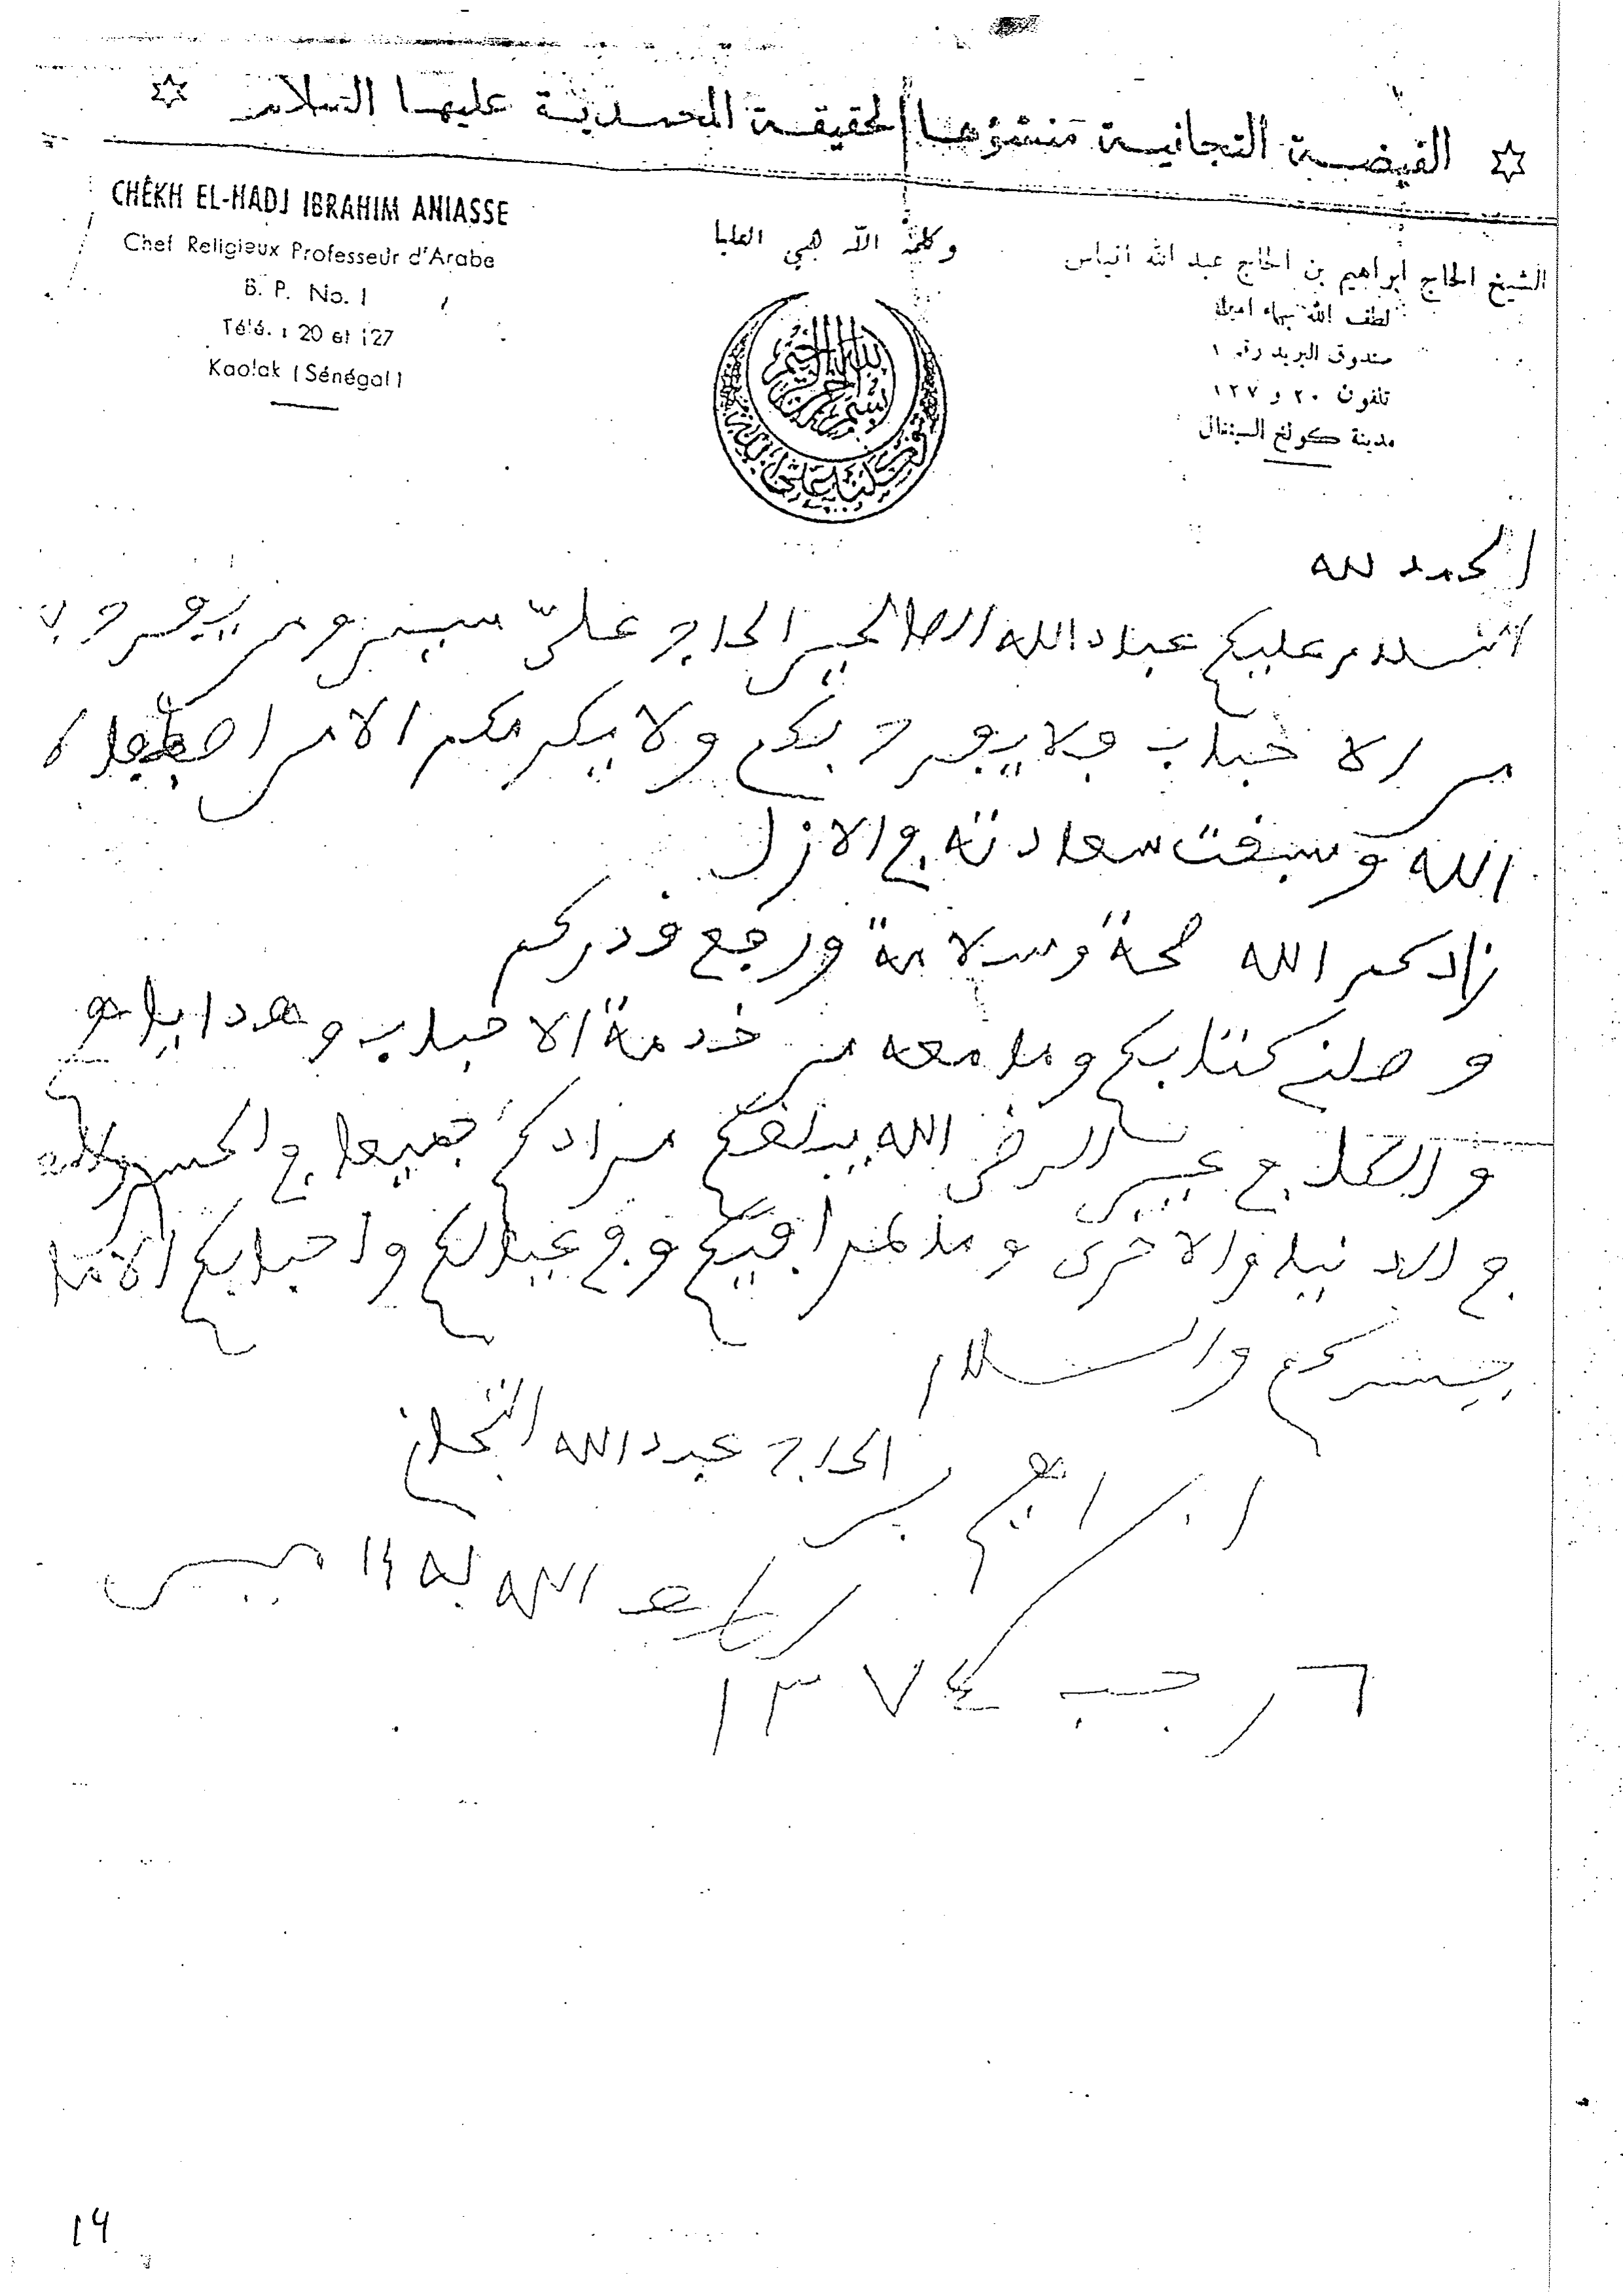 الفيضة التجانية منشؤها الحقيقة المحمدية عليها السلام
CHÊKH EL-HADJ IBRAHIM ANIASSE
Chef Religieux Professeur d'Arabe
B. P. No. 1
Télé. : 20 et 127
Kaolak (Sénégal)
وكلمة الله هي العليا
الشيخ الحاج ابراهيم بن الحاج عبد الله انياس
لطف الله بهما امين
صندوق البريد رقم ١
تلفون ٢٠ و ١٢٧
مدينة كولخ السينغال
بسم الله الرحمن الرحيم
الحمد لله
السلام عليكم عباد الله الصالحين الحاج علي سيس ومن يفرح ب
من الاحباب ولا يفرح بكم ولا يكرمكم الا من اصطفاه
الله وسبقت سعادته في الازل
زادكم الله صحة وسلامة ورفع قدركم
وصلني كتابكم وما معه من خدمة الاحباب وهداياهم
والكل في عين الرضى الله يبلغكم مرادكم جميعا في الحس
في الدنيا والاخرى وما لمرافيكم وفي عيالكم واحبابكم الا ما
يسركم والسلام
ابراهيم بن الحاج عبد الله التجاني
الله به ءامين
٦ رجب ١٣٧٤
19